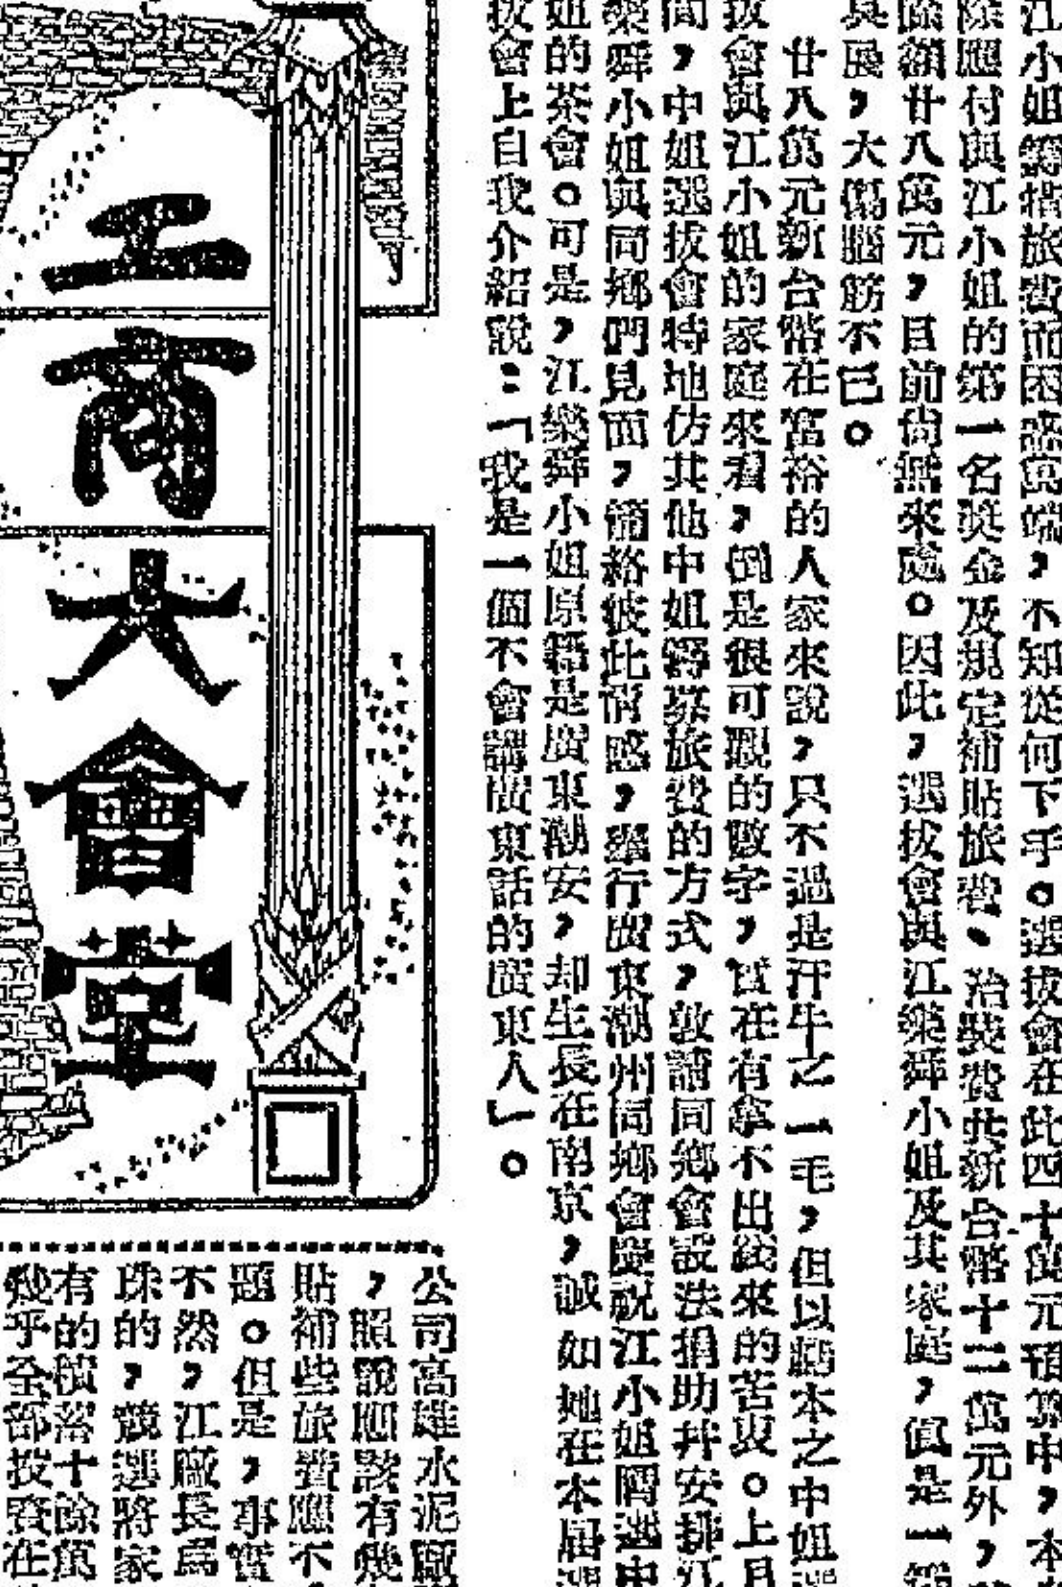 江小姐籌措旅費而困惑萬端，不知從何下手。選拔會在此四十萬元預算中，本
除應付與江小姐的第一名獎金及規定補貼旅費、治裝費共新台幣十二萬元外，
餘額廿八萬元，目前尚無來處。因此，選拔會與江樂舜小姐及其家庭，眞是一
具展，大傷腦筋不已。
廿八萬元新台幣在富裕的人家來說，只不過是汗牛之一毛，但以此本之中姐選
拔會與江小姐的家庭來看，倒是很可觀的數字，實在有拿不出錢來的苦衷。上月
間，中姐選拔會特地仿其他中姐籌募旅費的方式，敦請同鄉會設法捐助并安排江
樂舜小姐與同鄉們見面，籍絡彼此情感，舉行廣東潮州同鄉會慶祝江小姐膺選中
姐的茶會。可是，江樂舜小姐原籍是廣東潮安，却生長在南京，誠如她在本屆選
拔會上自我介紹說：「我是一個不會講廣東話的廣東人」。
工商大會堂
公司高雄水泥廠
，照說應該有幾
貼補些旅費應不
題。但是，事實
不然，江廠長爲
珠的，競選將家
有的積落十餘萬
幾乎全部投資在